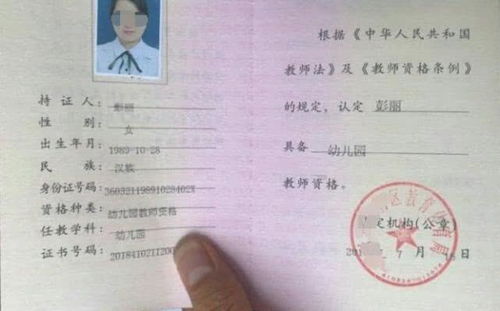 持证人: 彭丽
性别: 女
出生年月: 1989-10-28
民族: 汉族
身份证号码:
资格种类: 幼儿园教师资格
任教学科: 幼儿园
证书号码:
根据《中华人民共和国
教师法》及《教师资格条例》
的规定，认定 彭丽
具备 幼儿园
教师资格。
机构(公章)
7